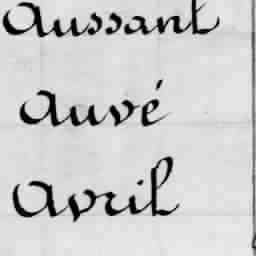 Aussant
Auvé
Avril